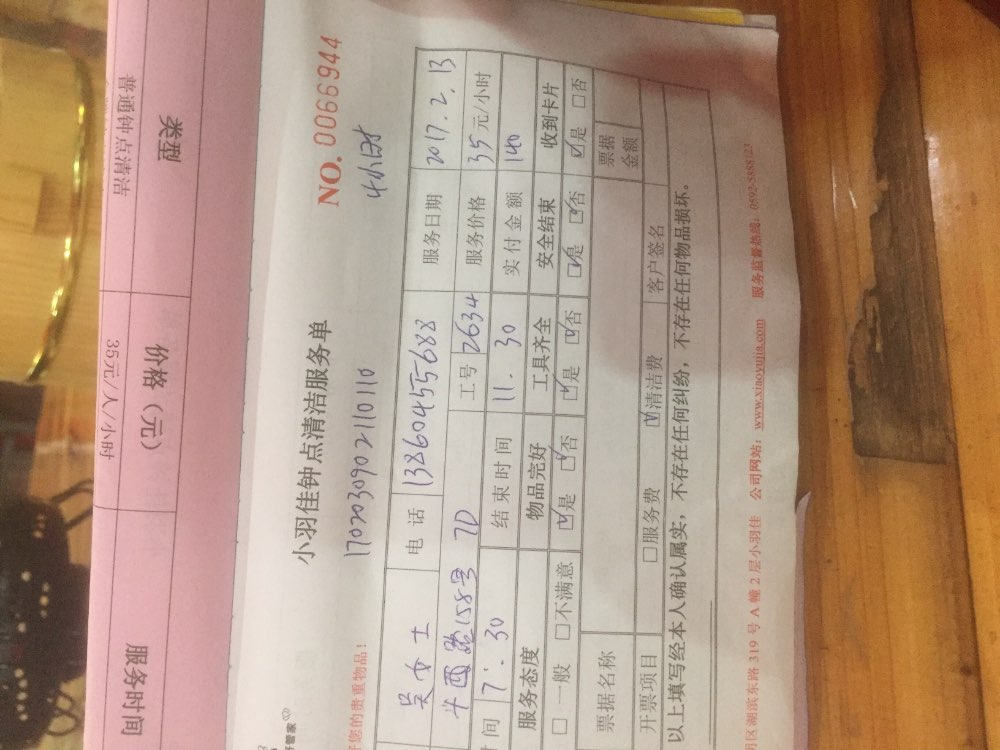 类型 价格（元） 服务时间
普通钟点清洁 35元/人/小时
NO. 0066944
小羽佳钟点清洁服务单
17020309021101110 4小时
好您的贵重物品！
吴女士 电 话 13860455688 服务日期 2017.2.13
西路158号 7D 工号 2634 服务价格 35元/小时
时 间 7:30 结束时间 11.30 实付金额 140
服务态度 物品完好 工具齐全 安全结束 收到卡片
□ 一般 □不满意 ☑是 ☑否 ☑是 ☑否 ☑是 ☑否 ☑是 □否
票据名称 票据金额
开票项目 □服务费 ☑清洁费 客户签名
以上填写经本人确认属实，不存在任何纠纷，不存在任何物品损坏。
区湖滨东路 319 号 A 幢 2 层小羽佳 公司网站：www.xiaoyujia.com 服务监督热线：0592-5888123